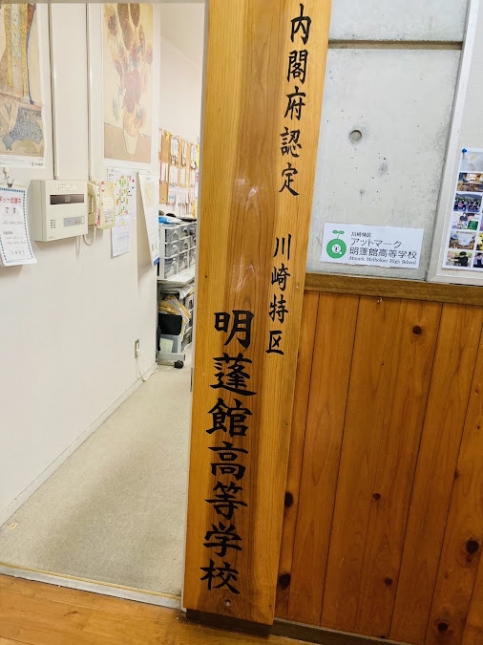 内閣府認定 川崎特区
明蓬館高等学校
川崎特区
アットマーク
明蓬館高等学校
です。